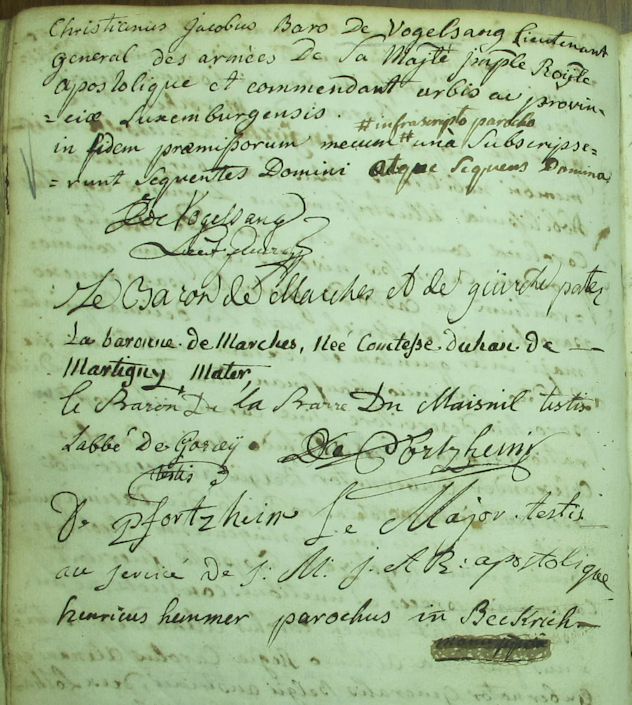 Christianus Jacobus Baro De Vogelsang Lieutenant
general des armées De Sa Majté jmple Royle
apostolique et commendant urbis ac provin-
-ciæ Luxemburgensis.
# infrascripto parocho
in fidem præmissorum mecum # unà subscripse-
-runt sequentes Domini atque sequens Domina
De Vogelsang
Le Baron de Marches et de guirche pater
La baronne de Marches, Neé Comtesse duhan de
Martigny Mater,
le Baron De la Barre Du Maisnil testis
L'abbé de Gorcey De Pfortzheim
testis
De Pfortzheim Le Major testis
au service de S: M: J: A R: apostolique
henricus hemmer parochus in Beckrich